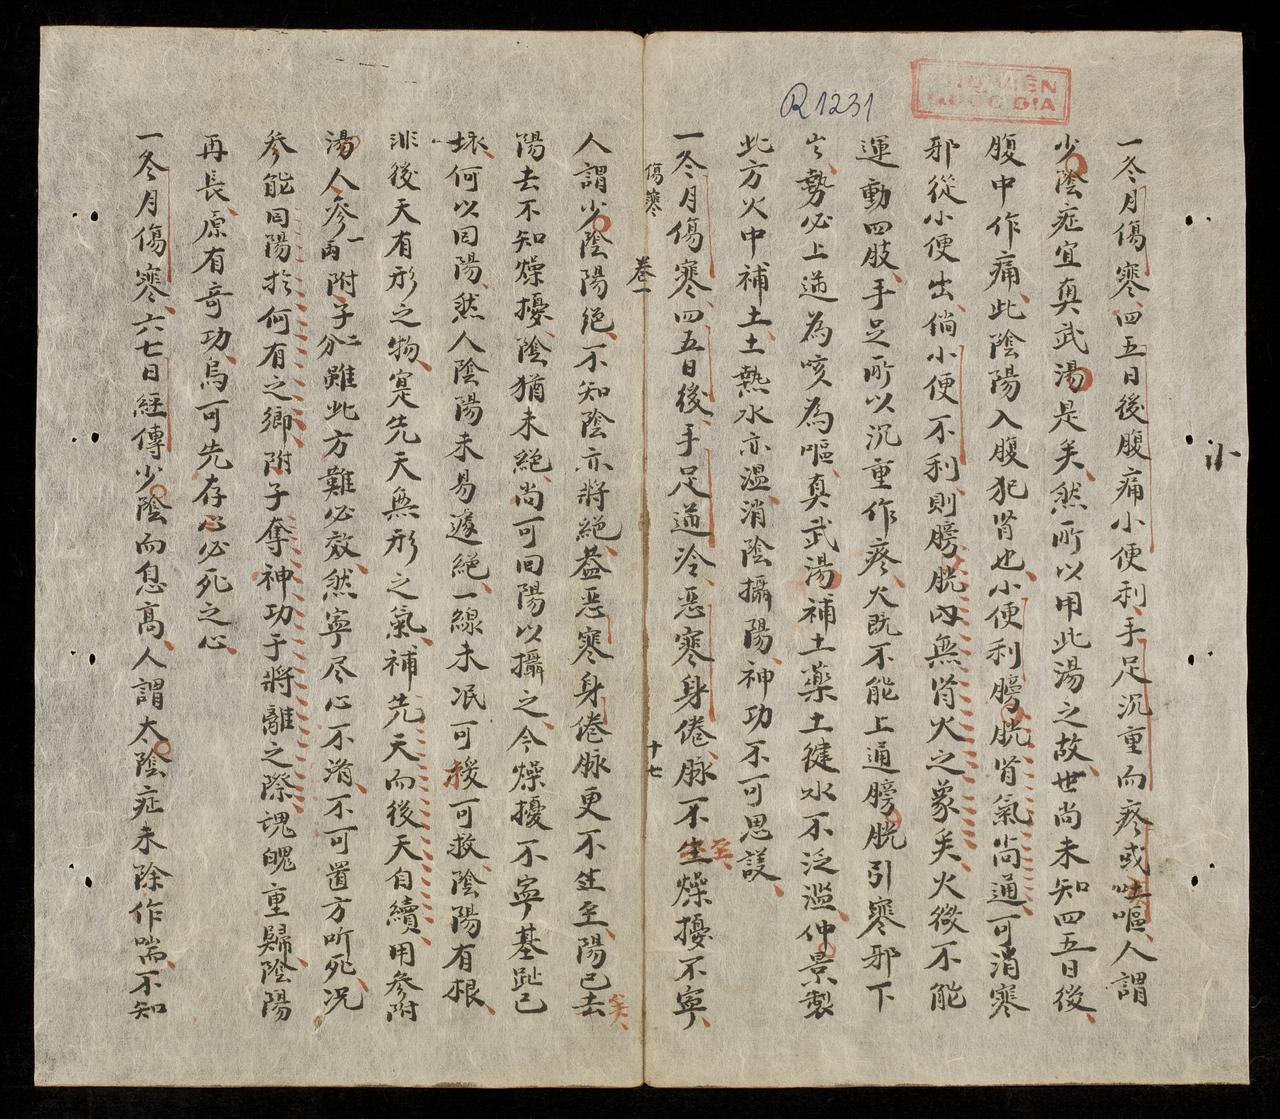 R1231
QUỐC GIA
一冬月傷寒四五日後腹痛小便利手足沉重而疼或嘔人謂
少陰症宜真武湯是矣然所以用此湯之故世尚未知四五日後
腹中作痛此陰陽入腹犯腎也小便利膀胱腎氣尚通可消寒
邪從小便出倘小便不利則膀胱內無腎火之象矣火微不能
運動四肢手足所以沉重作疼火既不能上通膀胱引寒邪下
出勢必上逆為咳為嘔真武湯補土藥土健水不泛濫仲景製
此方火中補土土熱水亦溫消陰攝陽神功不可思議
一冬月傷寒四五日後手足逆冷惡寒身倦脉不至燥擾不寧
傷寒 卷一 十七
人謂少陰陽絕不知陰亦將絕蓋惡寒身倦脉更不至陽已去矣
陽去不知燥擾陰猶未絕尚可回陽以攝之今燥擾不寧基趾已
壞何以回陽然人陰陽未易遽絕一線未泯可援可救陰陽有根
非後天有形之物寔先天無形之氣補先天而後天自續用參附
湯人參一兩附子二分雖此方難必效然寧尽心不淆不可置方听死况
參能回陽於何有之鄉附子奪神功于將離之際魂魄重歸陰陽
再長原有奇功烏可先存必死之心
一冬月傷寒六七日經傳少陰而息高人謂太陰症未除作喘不知